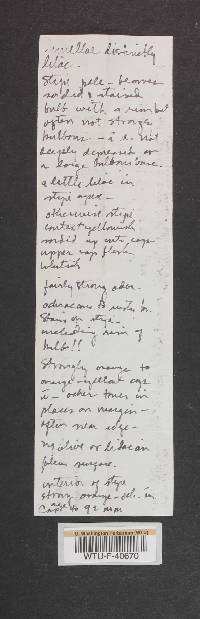 lamellae distinctly
lilac.
Stipe pale - becomes
sordid & stained
bulb with a rim but
often not strongly
bulbous - i.e. not
deeply depressed on
a large bulbous base.
a little lilac in
stipe apex -
otherwise stipe
context yellowish
sordid up into cap
upper cap flesh
whitish
fairly strong odor
Stain on stipe -
including rim of
bulb!!
Strongly orange to
orange-yellow cap
other tones in
places on margin -
often near edge -
no olive or lilac in
pileus surface.
interior of stipe
strong orange
Caps to 92 mm
U. Washington Herbarium (WTU)
WTU-F-40670